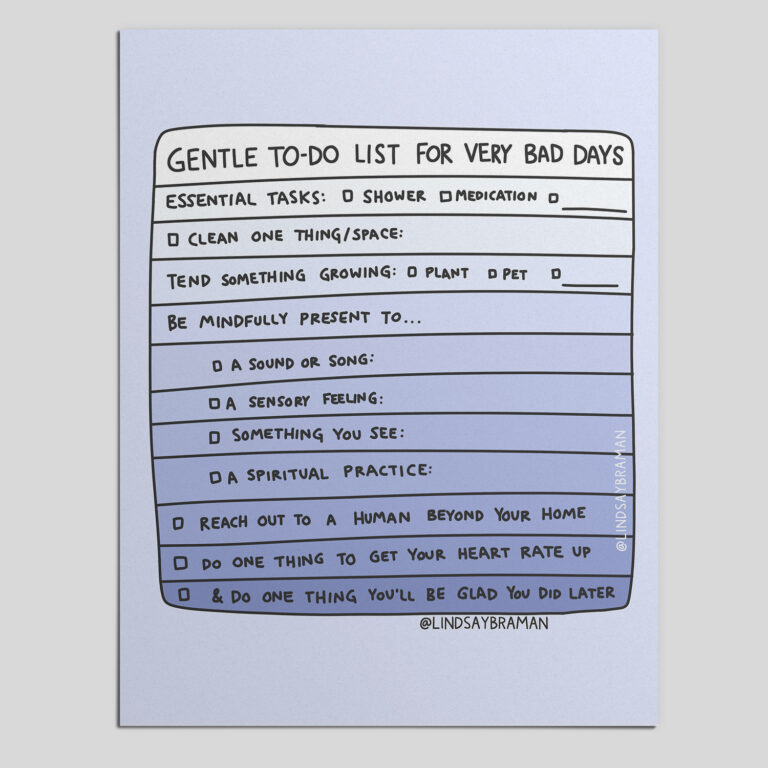 GENTLE TO-DO LIST FOR VERY BAD DAYS
ESSENTIAL TASKS: SHOWER MEDICATION
CLEAN ONE THING/SPACE:
TEND SOMETHING GROWING: PLANT PET
BE MINDFULLY PRESENT TO...
A SOUND OR SONG:
A SENSORY FEELING:
SOMETHING YOU SEE:
A SPIRITUAL PRACTICE:
REACH OUT TO A HUMAN BEYOND YOUR HOME
DO ONE THING TO GET YOUR HEART RATE UP
& DO ONE THING YOU'LL BE GLAD YOU DID LATER
@LINDSAYBRAMAN
@LINDSAYBRAMAN